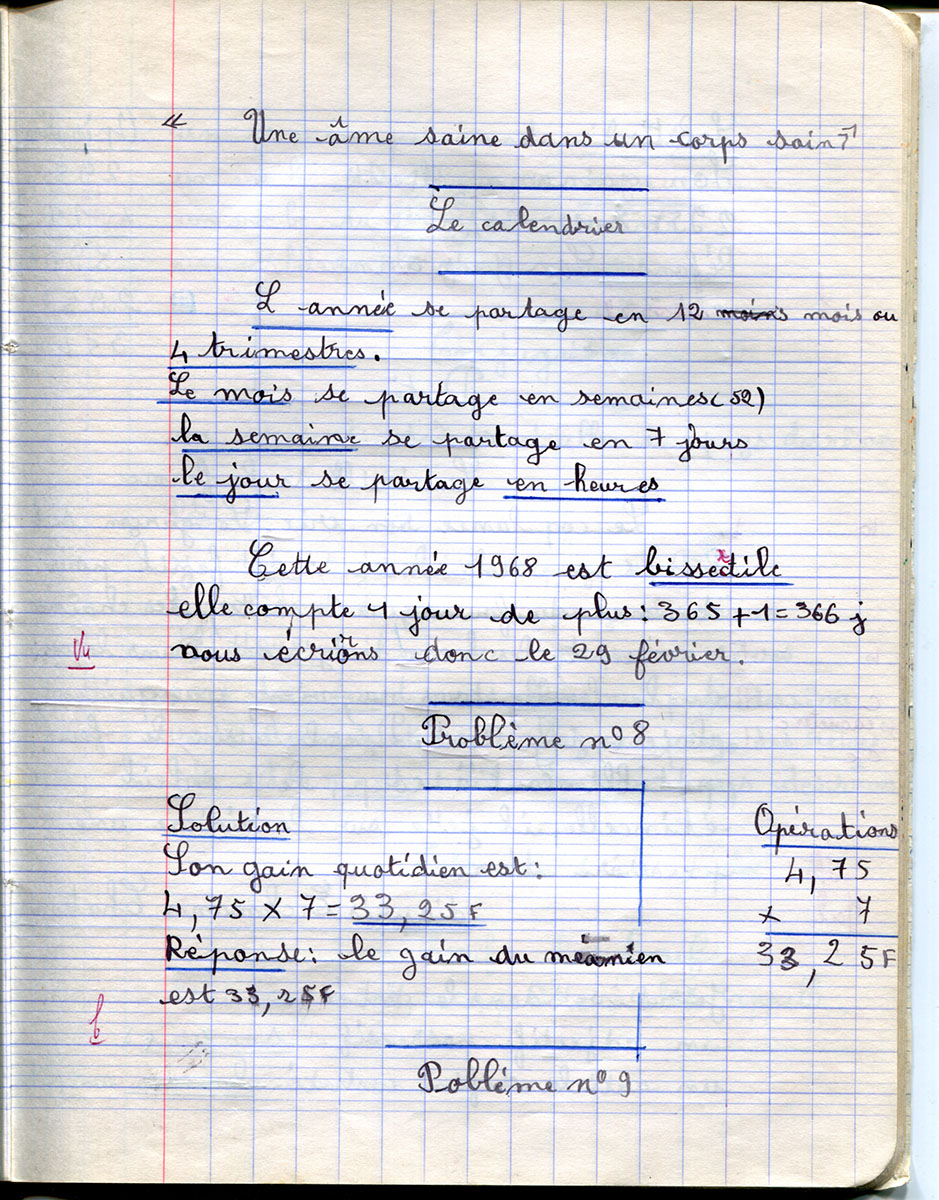 « Une âme saine dans un corps sain »
Le calendrier
L année se partage en 12 mois ou
4 trimestres.
Le mois se partage en semaines (52)
la semaine se partage en 7 jours
le jour se partage en heures
Cette année 1968 est bissextile
elle compte 1 jour de plus : 365 + 1 = 366 j
nous écrirons donc le 29 février.
Vu
Problème n° 8
Solution
Son gain quotidien est :
4,75 × 7 = 33,25 F
Réponse : le gain du
est 33,25 F
Opérations
4,75
× 7
33,25 F
b
Poblème n° 9